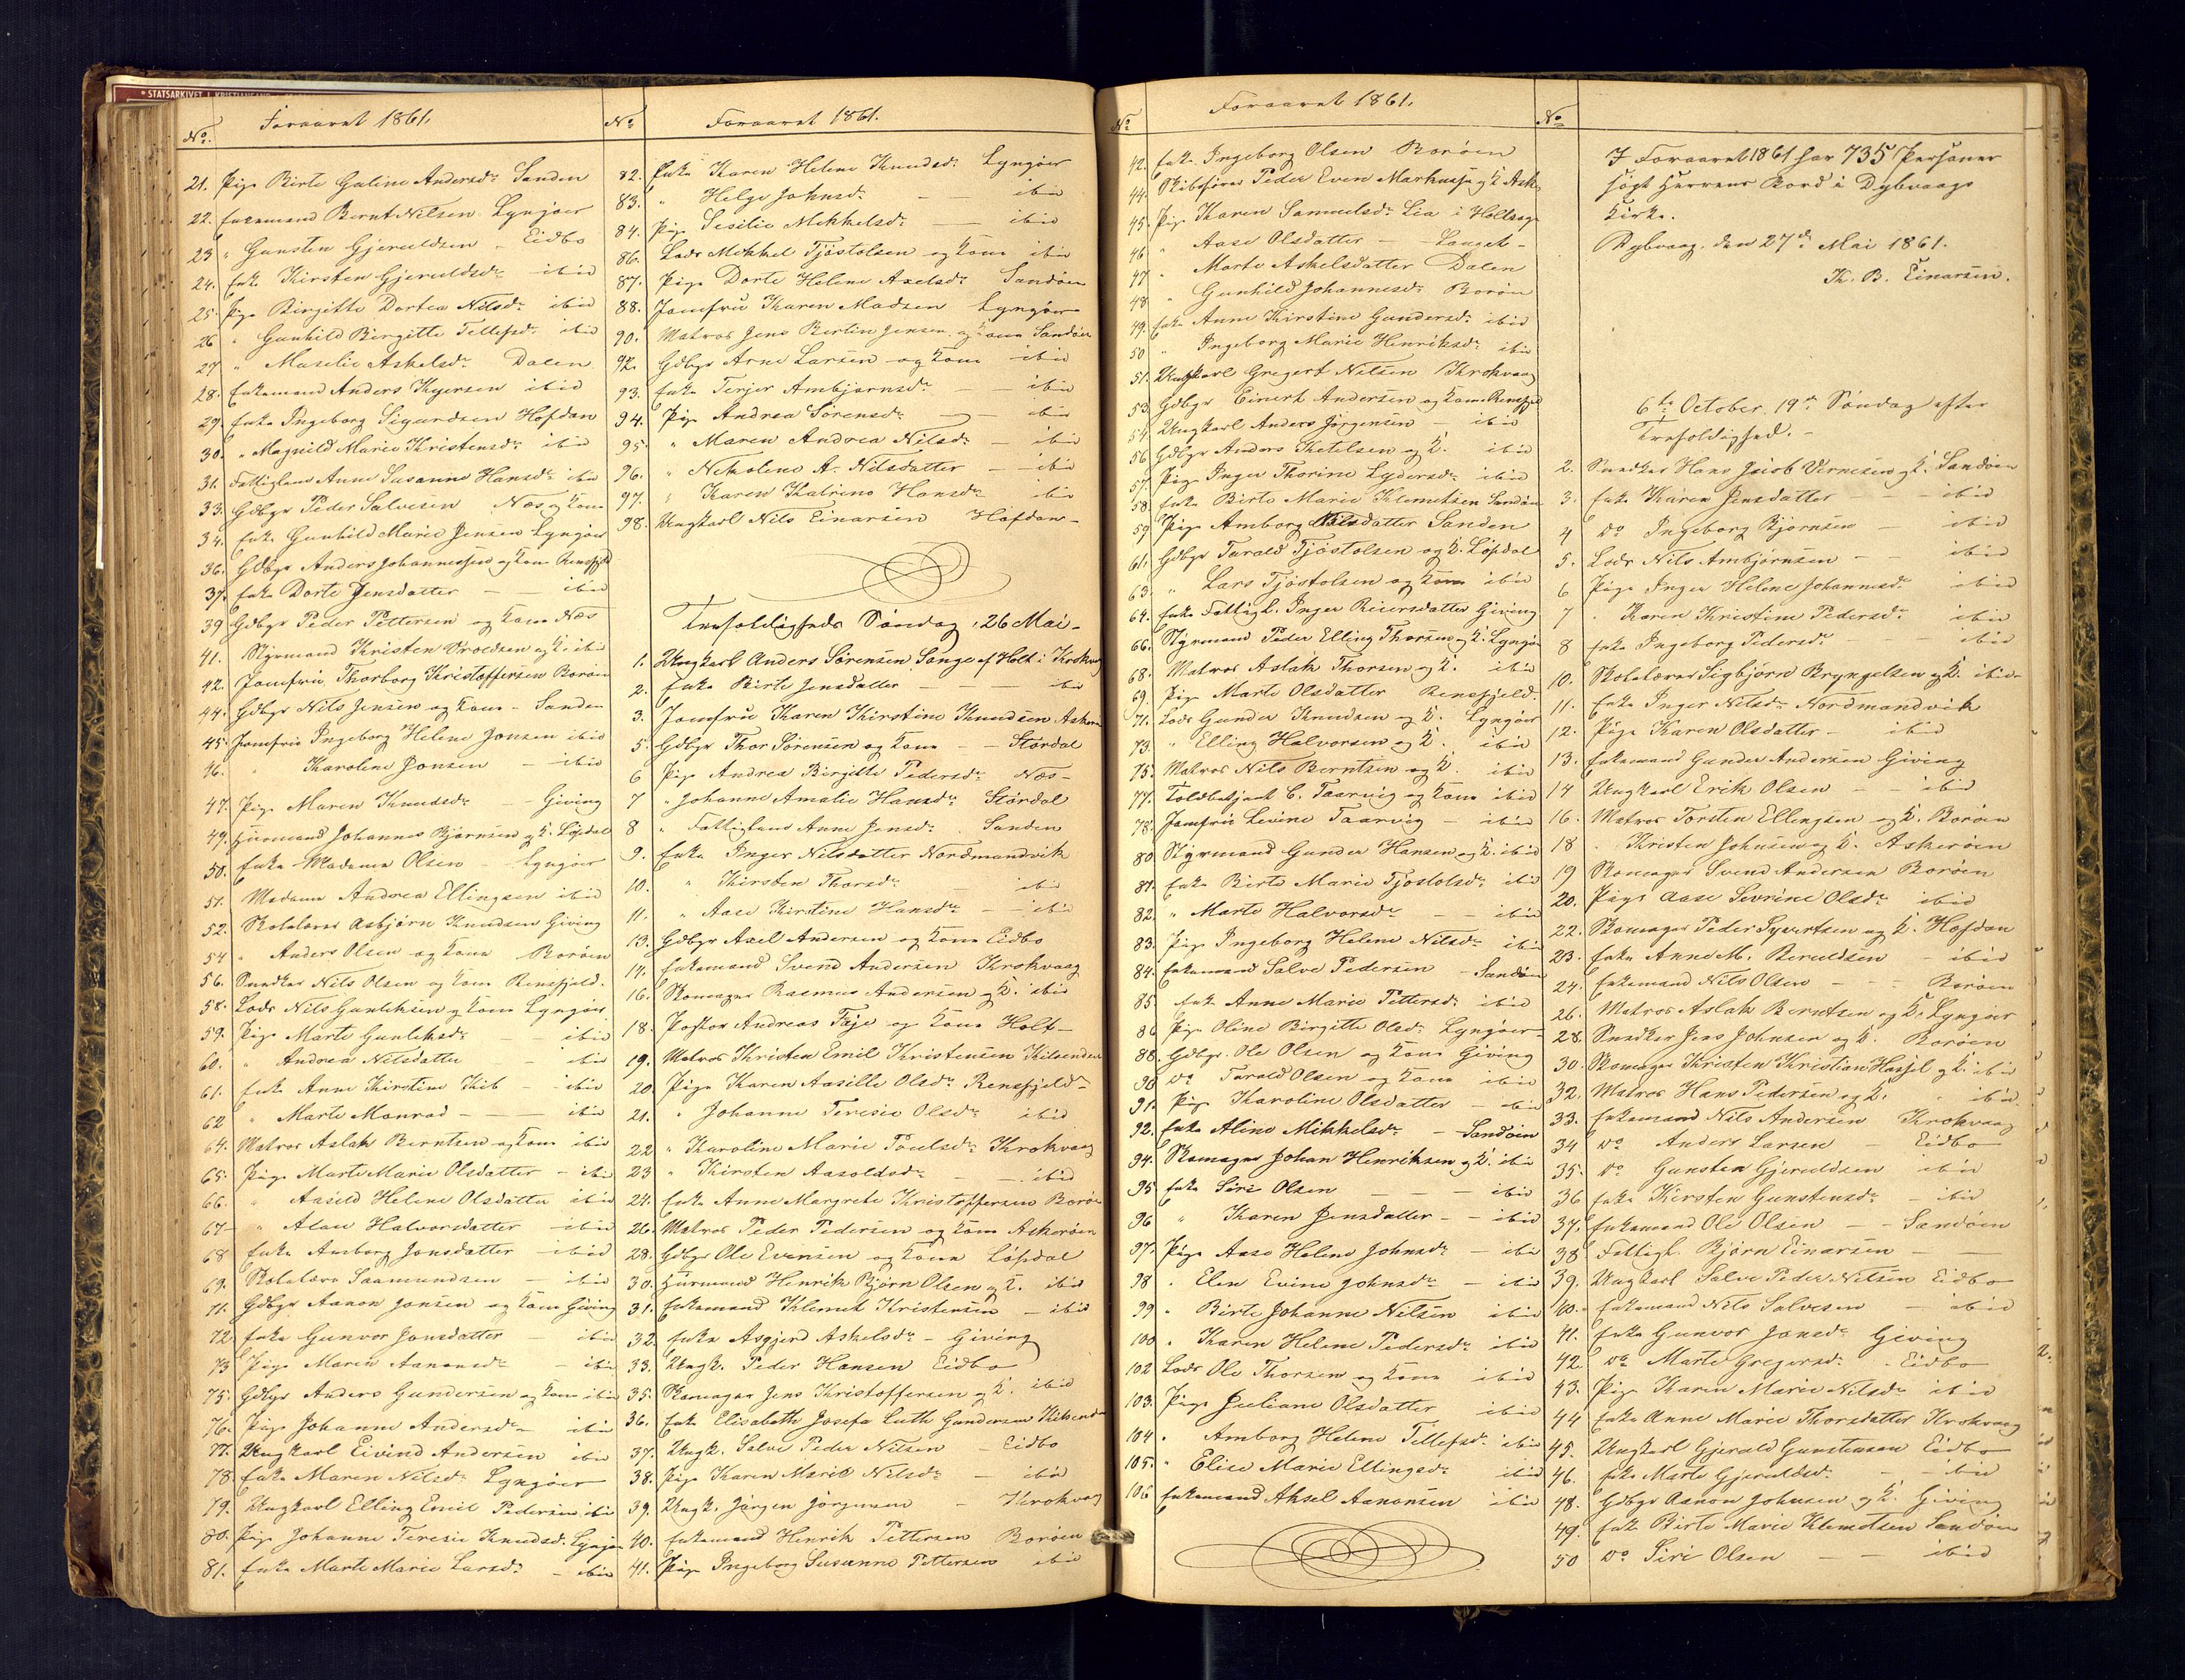 STATSARKIVET I KRISTIANSAND
Foraaret 1861.
No.
21. Pige Birte Galine Andersdr. Sanden
22. Enkemand Bernt Nilsen Lyngöer
23 " Gunsten Gjeruldsen - Eidbo
24. Enke Kirsten Gjeruldsdr. ibid
25. Pige Birgitte Dortea Nilsdr. ibid
26 " Gunhild Birgitte Tellefsdr. ibid
27 " Maselie Askelsdr. Dalen
28. Enkemand Anders Kyersen ibid
29. Enke Ingeborg Sigurdsen Hofdan
30. " Magnild Marie Kristensdr. ibid
31. Fattiglem Anne Susanne Hansdr. ibid
33. Gdbgr Peder Salvesen Næs og Kone
34. Enke Gunhild Marie Jensen Lyngöer
36. Gdbgr Anders Johannessen og Kone Rensfjeld
37. Enke Dorte Jensdatter - ibid
39 Gdbgr Peder Pettersen og Kone Næs
41. Styrmand Kristen Vroldsen og K. ibid
42. Jomfrü Thorborg Kristoffersen Boröen
44. Gdbgr Nils Jensen og Kone - Sanden
45. Jomfrü Ingeborg Helene Jonsen ibid
46. " Karoline Jonsen - ibid
47. Pige Maren Knudsdr. - Giving
49. Huusmand Johannes Bjørnsen og K. Löfsdal
50. Enke Madame Olsen - Lyngöer
51. Madame Andrea Ellingsen ibid
52. Skolelærer Asbjørn Knudsen Giving
54 " Anders Olsen og Kone Boröen
56. Snedker Nils Olsen og Kone Rensfjeld.
58. Lods Nils Gunliksen og Kone Lyngöer
59. Pige Marte Gunliksdr. - ibid
60. " Andrea Nilsdatter - ibid
61. Enke Anne Kirstine Kib - ibid
62 " Marte Monrad - - ibid
64. Matros Aslak Berntsen og Kone ibid
65. Pige Marte Marie Olsdatter - ibid
66. " Aasild Helene Olsdatter ibid
67 - " Alau Halvorsdatter - ibid
68 Enke Amborg Jonsdatter - ibid
69. Skolelærer Saamundsen - ibid
71. Gdbgr Aanon Jonsen og Kone Giving
72 Enke Gunvor Jonsdatter - ibid
73 Pige Maren Aanonsdr. - ibid
75. Gdbgr Anders Gundersen og Kone ibid
76. Pige Johanne Andersdr. - ibid
77. Ungkarl Eivind Andersen ibid
78. Enke Maren Nilsdr. Lyngöer
79. Ungkarl Elling Emil Pedersen ibid
80. Pige Johanne Teresie Knudsdr. Lyngöer
81. Enke Marte Marie Larsdr. - ibid
No Foraaret 1861.
82. Enke Karen Helene Knudsdr. Lyngöer
83. " Helge Johnsdr. - - ibid
84. Pige Sesilie Mikkelsdr. - ibid
86. Lods Mikkel Tjöstolsen og Kone ibid
87. Pige Dorte Helene Axelsdr. Sandöen
88. Jomfrü Karen Madsen Lyngöer
90. Matros Jens Bertin Jensen og Kone Sandöen
92. Gdbgr Arne Larsen og Kone ibid
93. Enke Terjer Ambjørnsdr. - ibid
94. Pige Andrea Sørensdr. - - ibid
95. " Maren Andrea Nilsdr. - ibid
96. " Nekoline A. Nilsdatter - - ibid
97. " Karen Katrine Hansdr. ibid
98. Ungkarl Nils Einarsen Hofdan -
Trefoldigheds Söndag, 26 Mai -
1. Ungkarl Anders Sørensen Songe af Holt i Krokvaag
2. Enke Birte Jensdatter - - - ibid
3. Jomfrü Karen Kirstine Knudsen Askeröen
5. Gdbgr Thor Sørensen og Kone - - Stördal
6 Pige Andrea Birgitte Pedersdr. Næs -
7 " Johanne Amalie Hansdr. Stördal
8 " Fattiglem Anne Jensdr. Sanden
9. Enke Inger Nilsdatter Nordmandvik
10. " Kirsten Thorsdr. ibid
11. " Aase Kirstine Hansdr. - - ibid
13. Gdbgr Axel Andersen og Kone Eidbo
14. Enkemand Svend Andersen Krokvaag
16. Skomager Rasmus Andersen og K. ibid
18. Pastor Andreas Faye og Kone Holt -
19. Matros Kristen Emil Kristensen Kilsenden
20. Pige Karen Aasille Olsdr. Rensfjeld -
21. " Johanne Teresie Olsdr. ibid
22 " Karoline Marie Poulsdr. Krokvaag
23 " Kirsten Aasoldsdr. - - ibid
24. Enke Anne Margrete Kristoffersen Boröen
26. Matros Peder Pedersen og Kone Askeröen
28. Gdbgr Ole Evensen og Kone Löfsdal
30. Huusmand Henrik Bjørn Olsen og K. ibid
31. Enkemand Klemet Kristensen - ibid
32. Enke Asgjerd Askelsdr. - Giving
33. Ungk. Peder Hansen Eidbo
35. Skomager Jens Kristoffersen og K. ibid
36. Enke Elisabeth Josefa Luth Gundersen Kilsenden
37. Ungk. Salve Peder Nilsen - Eidbo
38. Pige Karen Marie Nilsdr. - ibid
39. Ungk. Jörgen Jörgensen - Krokvaag
40. Enkemand Henrik Pettersen Boröen
41. Pige Ingeborg Susanne Pettersen ibid
No Foraaret 1861.
42. Enke Ingeborg Olsen Boröen
44. Skibsförer Peder Even Markussen og K. Ask.
45. Pige Karen Samuelsdr. Lia i Holtsogn
46 " Aase Olsdatter - Langet -
47 " Marte Askelsdatter Dalen
48 " Gunhild Johannesdr. Boröen
49. Enke Anne Kirstine Gundersdr. ibid
50 " Ingeborg Marie Henriksdr. ibid
51. Ungkarl Gregert Nilsen Krokvaag
53. Gdbgr Einert Andersen og Kone Rensfjeld
54. Ungkarl Anders Jörgensen - ibid
56 Gdbgr Anders Ketelsen og K. ibid
57. Pige Inger Thorine Lydersdr. ibid
58. Enke Birte Marie Klemetsen Sandöen
59 Pige Amborg Nilsdatter Sanden
61. Gdbgr Tarald Tjöstolsen og K. Löfsdal
63. " Lars Tjöstolsen og Kone ibid
64. Enke Fattigl. Inger Reiersdatter Giving
66. Styrmand Peder Elling Thorsen og K. Lyngöer
68. Matros Aslak Thorsen og K. ibid
69. Pige Marte Olsdatter Rensfjeld.
71. Lods Gunder Knudsen og K. Lyngöer
73. " Elling Halvorsen og K. ibid
75. Matros Nils Berntsen og K. ibid
77. Toldbetjent C. Taarvig og Kone ibid
78. Jomfrü Levine Taarvig - ibid
80 Styrmand Gunder Hansen og K. ibid
81. Enke Birte Marie Tjostolsdr. ibid
82. " Marte Halvorsdr. - - ibid
83. Pige Ingeborg Helene Nilsdr. ibid
84. Enkemand Salve Pedersen - Sandöen
85. Enke Anne Marie Pettersdr. ibid
86 Pige Oline Birgitte Olsdr. Lyngöer
88. Gdbgr. Ole Olsen og Kone Giving
90 do Tarald Olsen og Kone ibid
91. Pige Karoline Olsdatter - ibid
92. Enke Aline Mikkelsdr. - Sandöen
94. Skomager Johan Henriksen og K. ibid
95 Enke Siri Olsen - - - ibid
96 " Karen Jensdatter - - ibid
97. Pige Aase Helene Johnsdr. - ibid
98 " Elen Evine Johnsdr. - ibid
99 " Birte Johanne Nilsen ibid
100 " Karen Helene Pedersdr. ibid
102 Lods Ole Thorsen og Kone ibid
103. Pige Juliane Olsdatter ibid
104 " Amborg Helene Tellefsdr. ibid
105. " Elise Marie Ellingsdr. ibid
106 Enkemand Aksel Aanonsen ibid
No
I Foraaret 1861 har 735 Personer
sögt Herrens Bord i Dybvaags
Kirke.
Dybvaag, den 27de Mai 1861.
K. B. Einarsen.
6te October, 19de Söndag efter
Trefoldighed. -
2. Snedker Hans Jacob Vernesen og K. Sandöen
3. Enke Karen Jensdatter - - ibid
4 do Ingeborg Bjornsen - ibid
5. Lods Nils Ambjørnsen - ibid
6 Pige Inger Helene Johannesdr. ibid
7 " Karen Kristine Pedersdr. ibid
8 Enke Ingeborg Pedersdr. ibid
10. Skolelærer Sigbjørn Bryngelsen og K. ibid -
11. Enke Inger Nilsdr. Nordmandvik
12. Pige Karen Olsdatter - ibid
13. Enkemand Gunder Andersen Giving
14 Ungkarl Erik Olsen - - ibid
16. Matros Torsten Ellingsen og K. Boröen
18 " Kristen Johnsen og K. Askeröen
19 Skomager Svend Andersen Boröen
20. Pige Aase Sevrine Olsdr. ibid
22. Skomager Peder Syvertsen og K. Hofdan
23. Enke Anne M. Beruldsen - ibid
24. Enkemand Nils Olsen - - - Boröen
26. Matros Aslak Berntsen og K. Lyngöer
28. Snedker Jens Johnsen og K. Boröen
30. Skomager Kristen Kristian Hassel og K. ibid
32. Matros Hans Pedersen og K. ibid.
33. Enkemand Nils Andersen Krokvaag
34 do Anders Larsen - Eidbo
35. do Gunsten Gjeruldsen ibid
36 Enke Kirsten Gunstensdr. - ibid
37. Enkemand Ole Olsen - - Sandöen
38 Fattigl. Bjørn Einarsen - -
39. Ungkarl Salve Peder Nilsen Eidbo
40. Enkemand Nils Salvesen ibid
41. Enke Gunvor Jonsdr. Giving
42. do Marte Gregersdr. - Eidbo
43. Pige Karen Marie Nilsdr. ibid
44 Enke Anne Marie Thorsdatter Krokvaag
45. Ungkarl Gjeruld Gunstensen Eidbo
46. Enke Marte Gjeruldsdr. - - ibid
48. Gdbgr Aanon Johnsen og K. Giving
49. Enke Birte Marie Klemetsen Sandöen
50 do Siri Olsen - - ibid